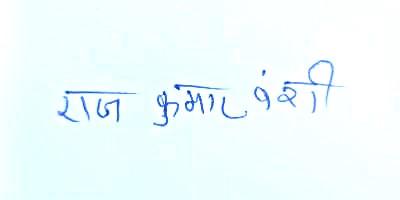 राज कुमार वंशी